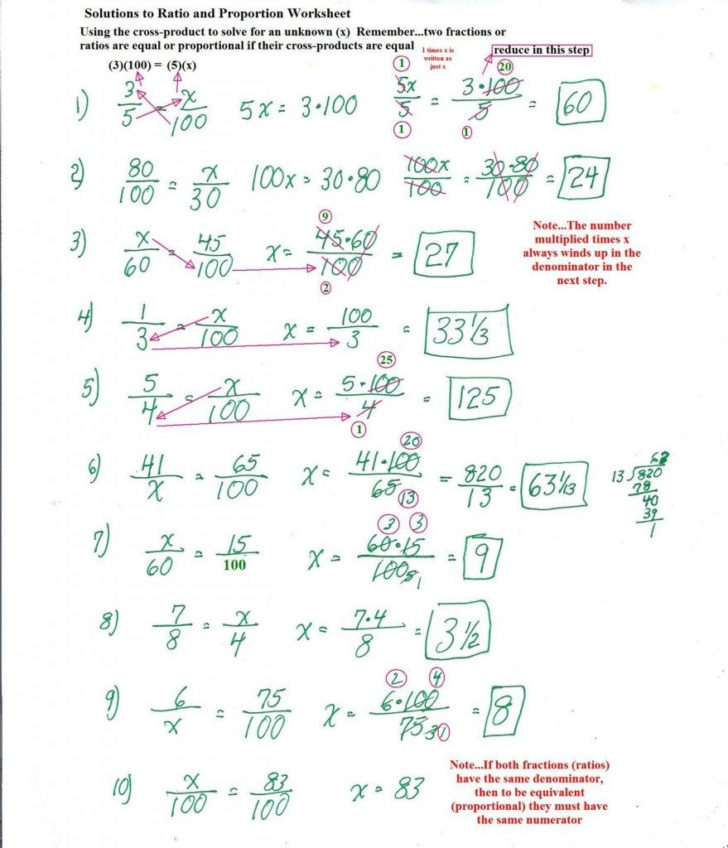 Solutions to Ratio and Proportion Worksheet
Using the cross-product to solve for an unknown (x) Remember...two fractions or
ratios are equal or proportional if their cross-products are equal
1 times x is
written as
just x
reduce in this step
(3)(100) = (5)(x)
1) 3/5 = x/100 5x = 3·100 5x/5 = 3·100/5 = 60
1 20
1 1
2) 80/100 = x/30 100x = 30·80 100x/100 = 30·80/100 = 24
3) x/60 = 45/100 x = 45·60/100 = 27
9
2
Note...The number
multiplied times x
always winds up in the
denominator in the
next step.
4) 1/3 = x/100 x = 100/3 = 33 1/3
5) 5/4 = x/100 x = 5·100/4 = 125
25
1
6) 41/x = 65/100 x = 41·100/65 = 820/13 = 63 1/13
20
13
13 820
78
40
39
1
7) x/60 = 15/100 x = 60·15/100 = 9
3 3
5 1
8) 7/8 = x/4 x = 7·4/8 = 3 1/2
9) 6/x = 75/100 x = 6·100/75 = 8
2 4
10) x/100 = 83/100 x = 83
Note...If both fractions (ratios)
have the same denominator,
then to be equivalent
(proportional) they must have
the same numerator